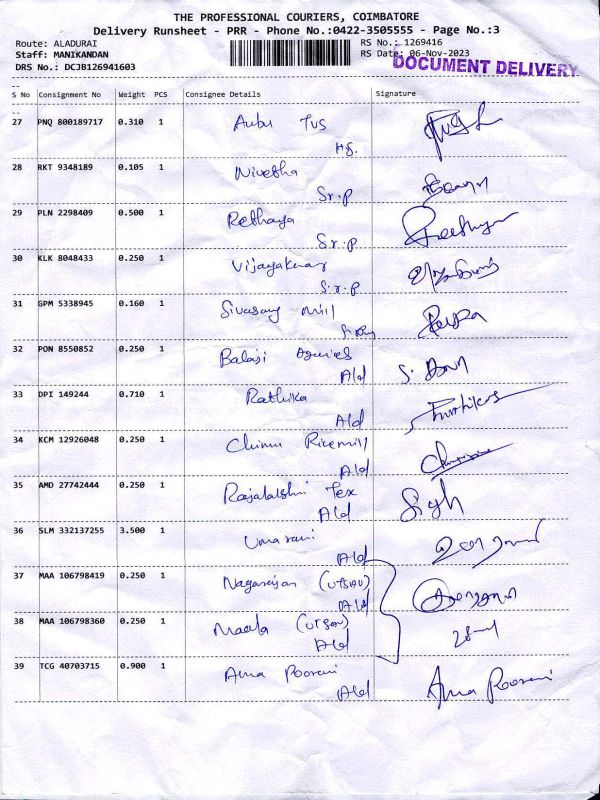 THE PROFESSIONAL COURIERS, COIMBATORE
Delivery Runsheet - PRR - Phone No.:0422-3505555 - Page No.:3
Route: ALADURAI
RS No.: 1269416
Staff: MANIKANDAN
RS Date: 06-Nov-2023
DRS No.: DCJB126941603
DOCUMENT DELIVERY
S No Consignment No Weight PCS Consignee Details Signature
27 PNQ 800189717 0.310 1 TVS
28 RKT 9348189 0.105 1 Nivetha
Sr.p
29 PLN 2298409 0.500 1 Rethanya
Sr.p
30 KLK 8048433 0.250 1 Vijayakumar
S.r.p
31 GPM 5338945 0.160 1 Mill
32 PON 8550852 0.250 1 Balaji
Ald
33 DPI 149244 0.710 1 Rathika
Ald
34 KCM 12926048 0.250 1 Ricemill
Ald
35 AMD 27742444 0.250 1 Rajalakshmi Tex
Ald
36 SLM 332137255 3.500 1 Umarani
Ald
37 MAA 106798419 0.250 1 Nagarajan
Ald
38 MAA 106798360 0.250 1 Maala
Ald
39 TCG 40703715 0.900 1 Ama Poorani Ama Poorani
Ald